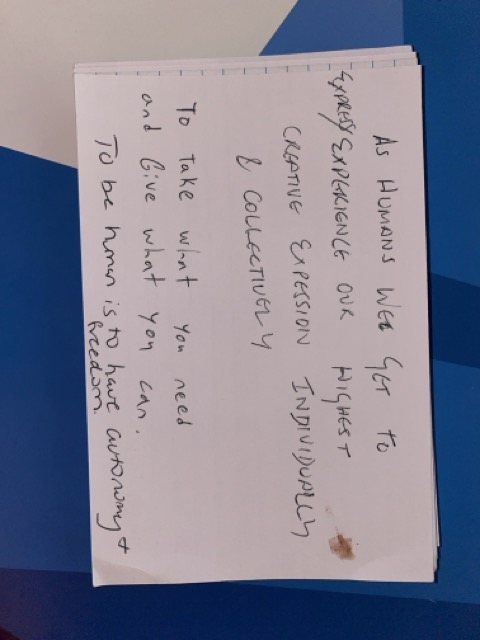 AS HUMANS WEE GET TO
EXPRESS/EXPERIENCE OUR HIGHEST
CREATIVE EXPESSION INDIVIDUALLY
& COLLECTIVELY
To Take what you need
and Give what you can.
To be human is to have autonomy +
freedom.